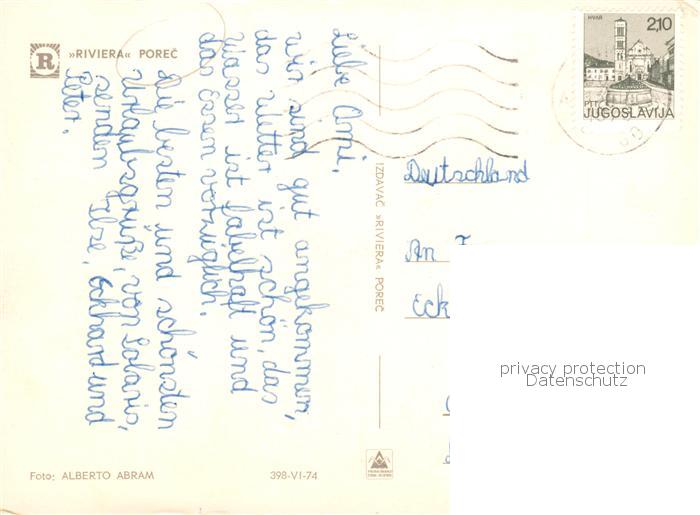 »RIVIERA« POREČ
Liebe Omi,
wir sind gut angekommen,
das Wetter ist schön, das
Wasser ist fabelhaft und
das Essen vorzüglich.
Die besten und schönsten
Urlaubsgrüße, von Solaris,
senden Ilse, Eckhard und
Peter.
Foto: ALBERTO ABRAM
398-VI-74
IZDAVAČ »RIVIERA« POREČ
HVAR
2,10
PTT
JUGOSLAVIJA
Deutschland
An
Eck
privacy protection
Datenschutz